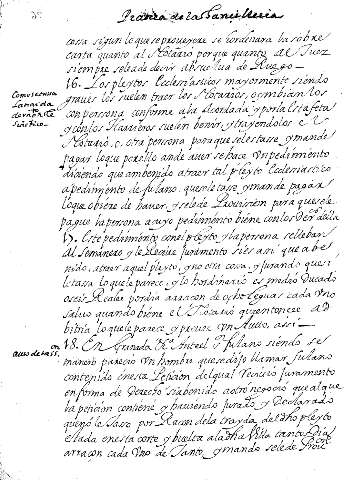 Pratica de la Chancilleria
cosa sigun lo que se proveyere se hordenara la sobre
carta quanto al Notario porque quanto al Juez
siempre se ha de decir absuelva de
16. Los pleytos Ecclesiasticos mayormente siendo
graves los suelen traer los Notarios, o embian los
con persona conforme a lo acordado y por la estafeta
y con los suelen benir, y trayendolos el
Notario o otra persona para que se le tase, y mande
pagar lo que por ello ande auer se hace un pedimiento
diciendo que an benido a traer tal pleyto Ecclesiastico
a pedimiento de fulano. que le tase, y mande pagar
lo que obiere de haver, y se le de Provision para que se le
pague la persona a cuyo pedimiento biene con los
17. Este pedimiento con el pleyto y la persona se lleban
al Semanero, y le Recive juramento si es ansi que a be
nido, a traer aquel pleyto, y no otra cosa, y jurando que si
le tasa lo que le parece, y lo hordinario es medio Ducado
o seis Reales por dia a racon de ocho leguas cada uno
salvo quando biene el Notario que entonces ad
bitria lo que le parece y provee un Auto, assi
18. En Granada Ante el fulano siendo se
manero parecio un hombre que se dijo llamar fulano
contenido en esta Peticion del qual Recivio juramento
en forma de Derecho si a benido a otro negocio que al que
la peticion contiene y haviendo jurado, y Declarado
que no le Taso por Racon de la trayda, del dho pleyto
estada en esta corte y buelta a la dha Villa tantos Dias
a racon cada uno de Tanto, y mando se le de Provi